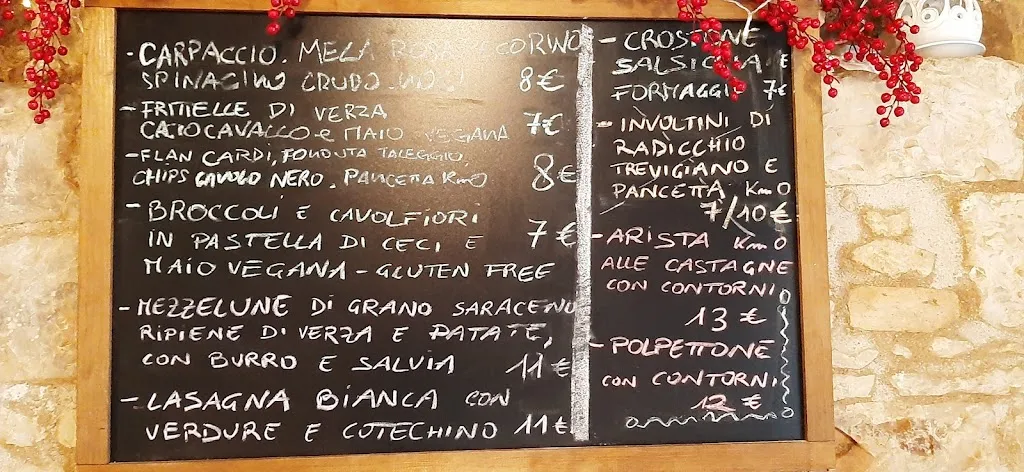 - CARPACCIO. MELA
SPINACINO CRUDO 8€
- FRITTELLE DI VERZA
CACIOCAVALLO e MAIO VEGANA 7€
- FLAN CARDI, FONDUTA TALEGGIO,
CHIPS CAVOLO NERO. PANCETTA Km0 8€
- BROCCOLI E CAVOLFIORI
IN PASTELLA DI CECI E 7€
MAIO VEGANA - GLUTEN FREE
- MEZZELUNE DI GRANO SARACENO
RIPIENE DI VERZA E PATATE,
CON BURRO E SALVIA 11€
- LASAGNA BIANCA CON
VERDURE E COTECHINO 11€
- CROSTONE
SALSICCIA E
FORMAGGIO 7€
- INVOLTINI DI
RADICCHIO
TREVIGIANO E
PANCETTA Km0
7/10€
- ARISTA Km0
ALLE CASTAGNE
CON CONTORNI
13€
- POLPETTONE
CON CONTORNI
12€